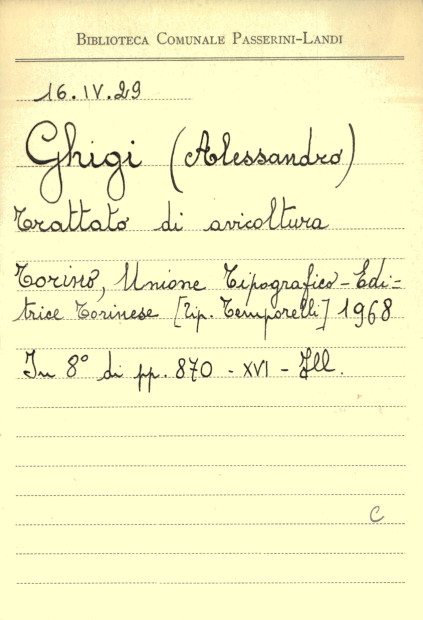 BIBLIOTECA COMUNALE PASSERINI-LANDI
16.IV.29
Ghigi (Alessandro)
Trattato di avicoltura
Torino, Unione Tipografico-Edi-
trice Torinese [Tip. Temporelli] 1968
In 8° di pp. 870 - XVI - Ill.
C